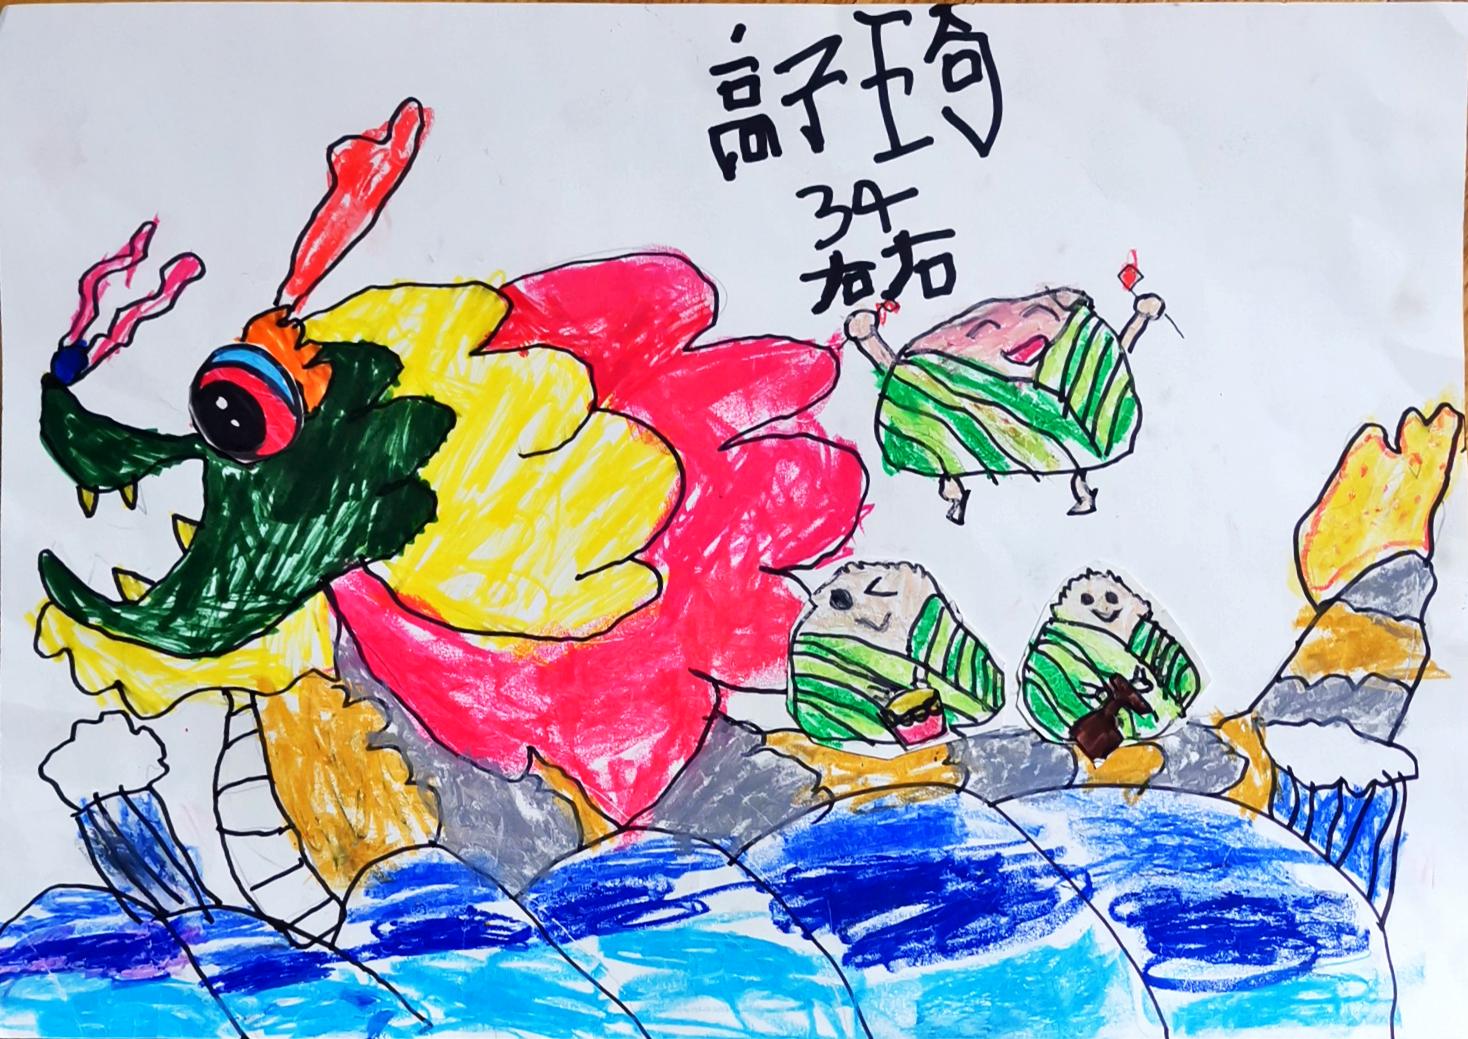 高子琦
34
右右